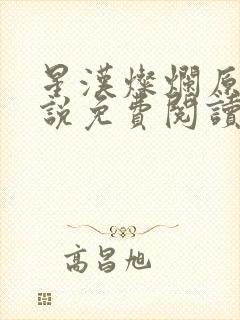 星漢燦爛原
說免費閱讀
高昌旭